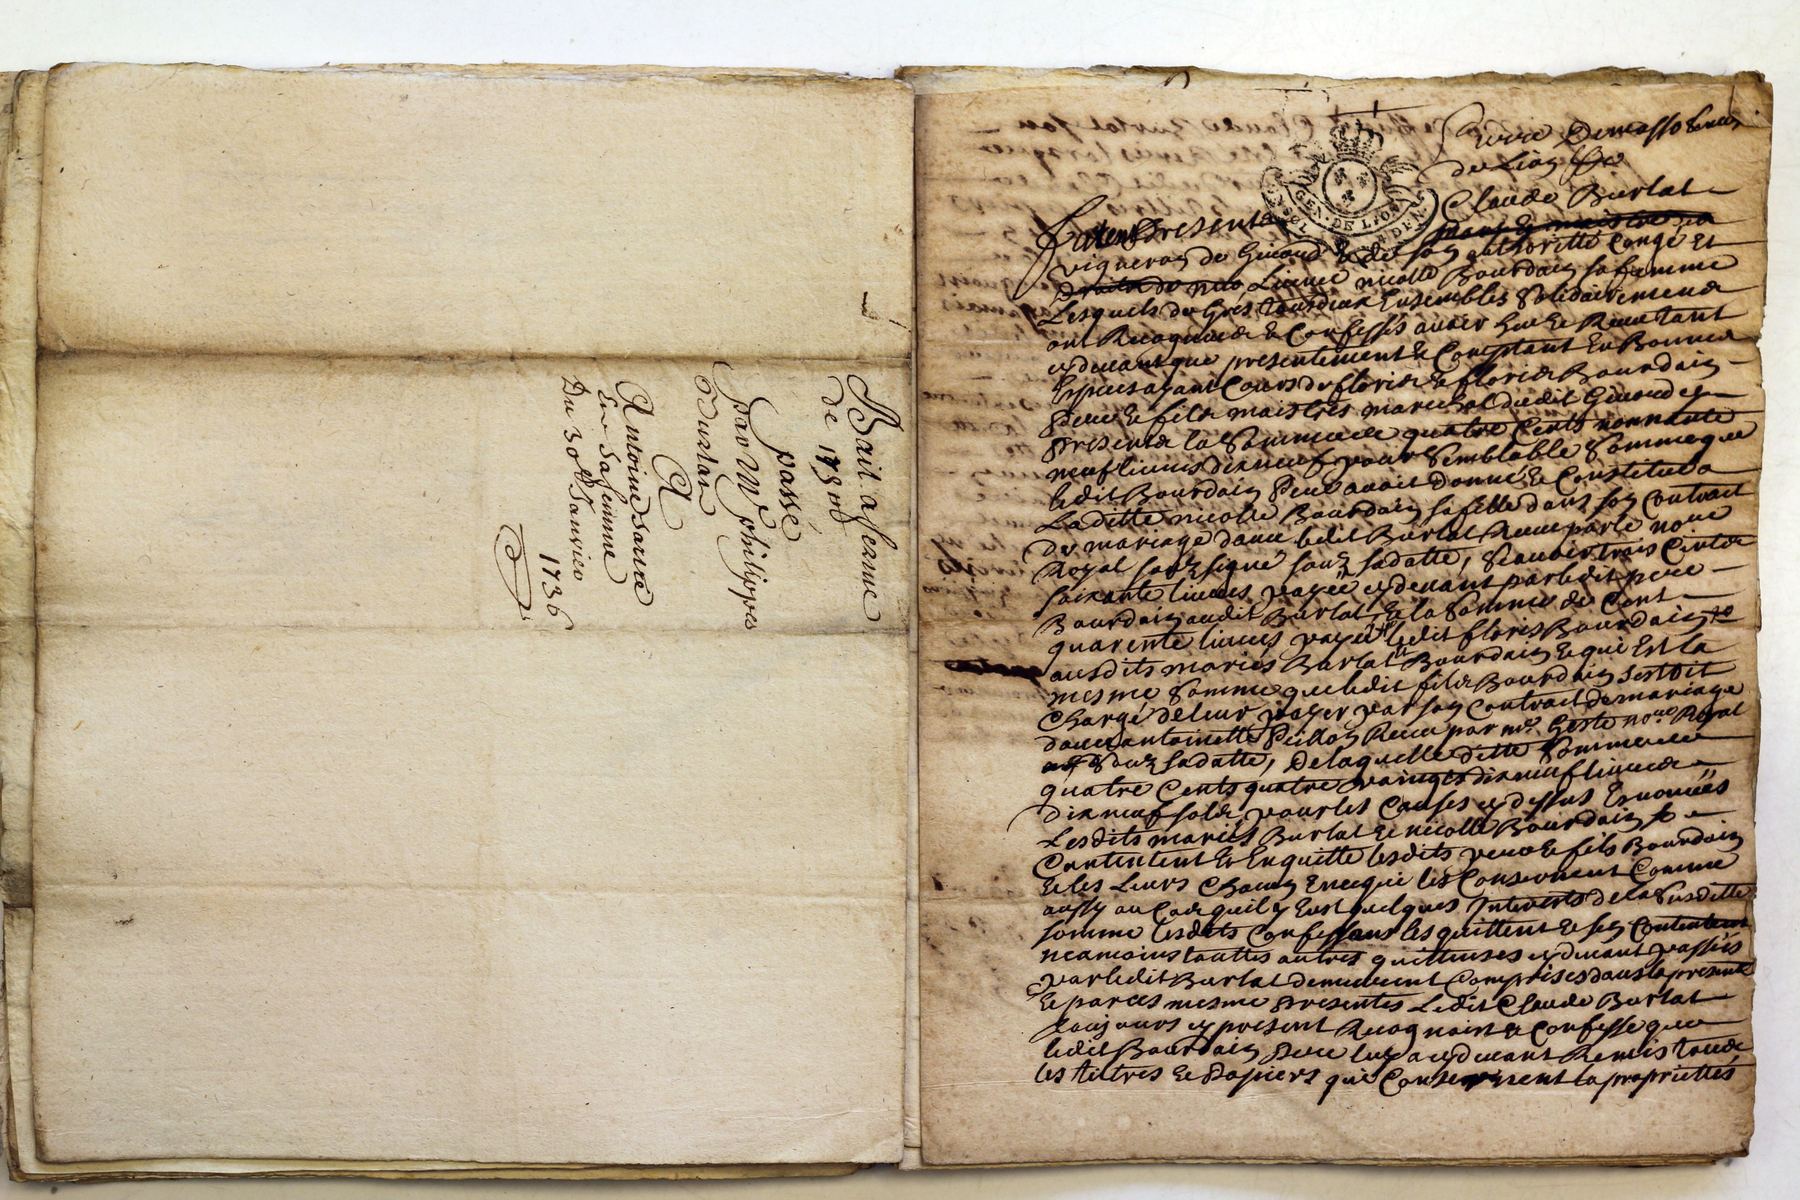 Bail a ferme
de 173
passé
par Mr philippes
Durtan
A
Antoine
Et Sa femme
Du 30e Janvier
1736
GEN·DE LION
Claude Burlat
furent Presents
vigneron de Givord & de son authoritté Congé Et
Licence nicolle Bourdain sa femme
Lesquels de Grés tous deux Ensembles Solidairement
ont Recogneu & Confessés avoir heu & Receu tant
cydevant que presentement & Comptant En Bonnes
Especes ayant Cours de floris & floris Bourdain
Pere & fils maistres mareschal dudit Givord cy
Presents la Somme de quatre Cents nonnante
neuf livres dix neuf pour Semblable Somme que
ledit Bourdain Pere avoit donné & Constitué a
Laditte nicolle Bourdain sa fille dans son Contrait
de mariage avec ledit Burlat Receu par le no.re
Royal sousigné sous sa datte, Scavoir trois Cents
soixante livres payée cydevant par ledit pere
Bourdain audit Burlat & la Somme de Cent
quarente livres payée ledit floris Bourdain
ausdits mariés Burlat Bourdain & qui Est la
mesme Somme que ledit fils Bourdain sestoit
Chargé de leur payer par son Contrait de mariage
avec antoinette Peillon Receu par me no.re Royal
Sous sa datte, De laquelle ditte Somme de
quatre Cents quatre vaingts dix neuf livres
dix neuf sols pour les Causes cy dessus Enoncées
Lesdits mariés Burlat & nicolle Bourdain se
Contentent & En quitte lesdits pere & fils Bourdain
& les Leurs Chacun En ce qui les Consernent Comme
aussy au Cas quil y Eust quelques Interests de la Susditte
somme lesdits Confessants les quittent & sen Contentent
neamoins touttes autres quittances cydevant passées
par ledit Burlat demeurent Comprises dans la presente
& par ces mesme Presentes Ledit Claude Burlat
toujours cy present Recognoist & Confesse que
ledit Bourdain Pere luy a cydevant Remis tous
les tiltres & Papiers qui Consernent la proprietté